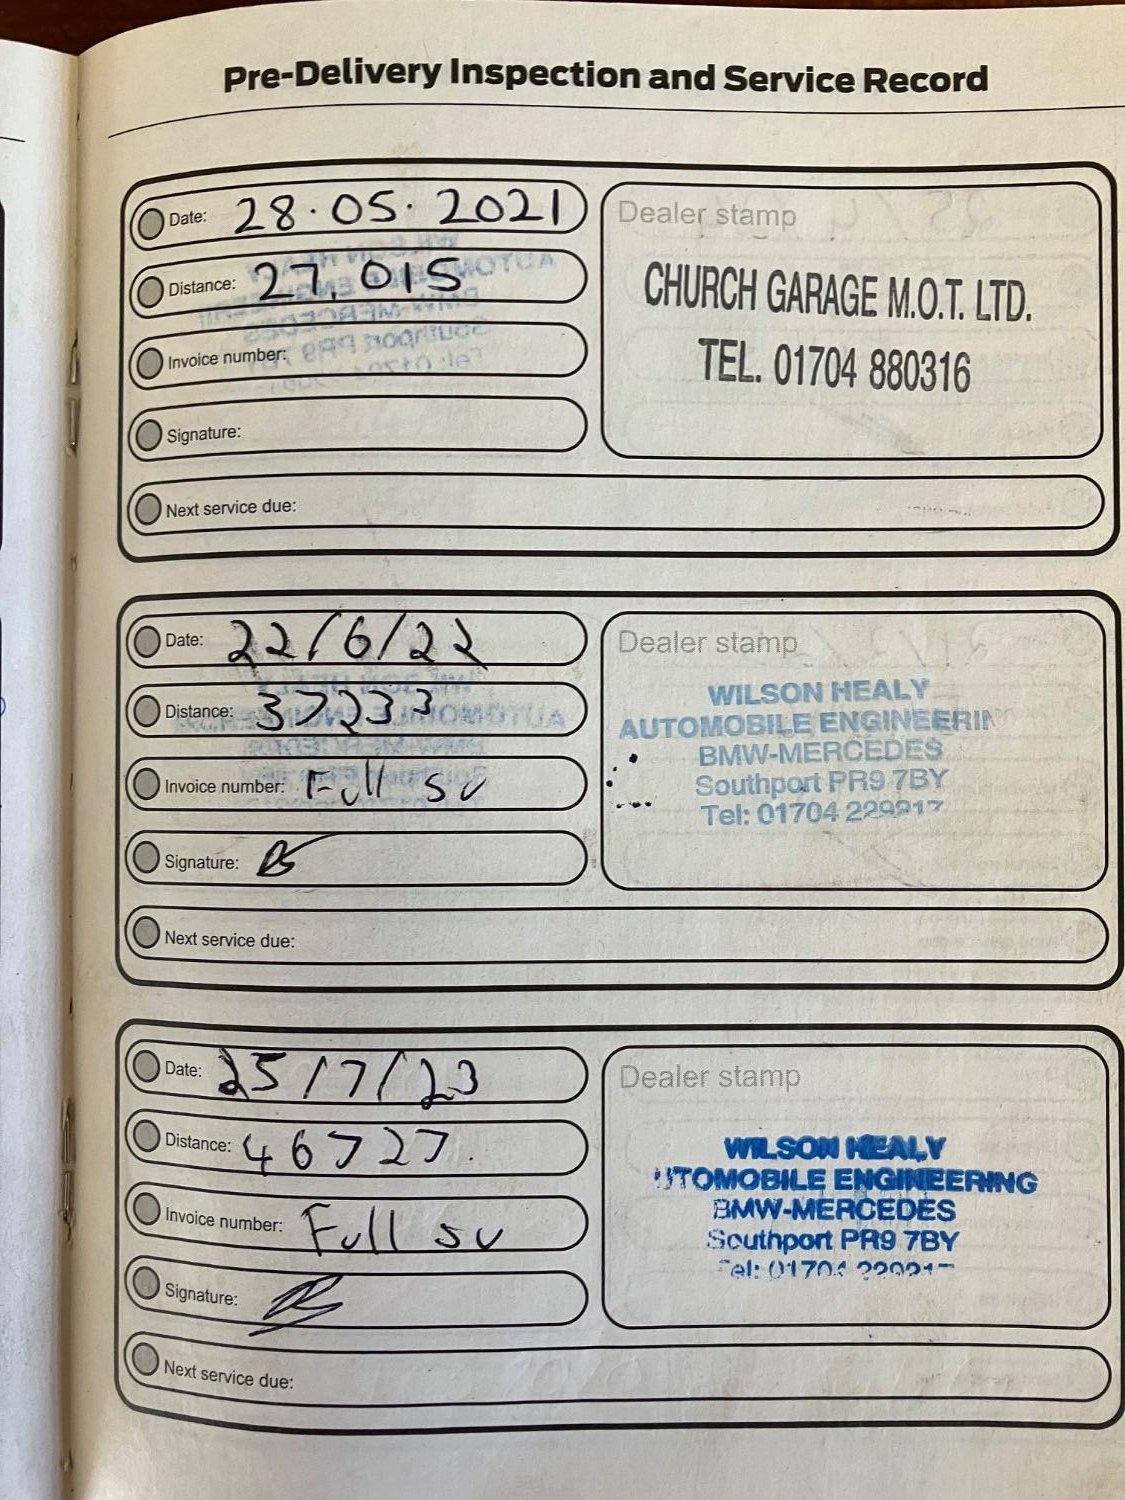 Pre-Delivery Inspection and Service Record
Date: 28.05.2021
Distance: 27,015
Invoice number:
Signature:
Next service due:
Dealer stamp
CHURCH GARAGE M.O.T. LTD.
TEL. 01704 880316
Date: 22/6/22
Distance: 37233
Invoice number: Full sv
Signature:
Next service due:
Dealer stamp
WILSON HEALY
AUTOMOBILE ENGINEERIN
BMW-MERCEDES
Southport PR9 7BY
Tel: 01704 229217
Date: 25/7/23
Distance: 46727.
Invoice number: Full sv
Signature:
Next service due:
Dealer stamp
WILSON HEALY
UTOMOBILE ENGINEERING
BMW-MERCEDES
Southport PR9 7BY
Tel: 01704